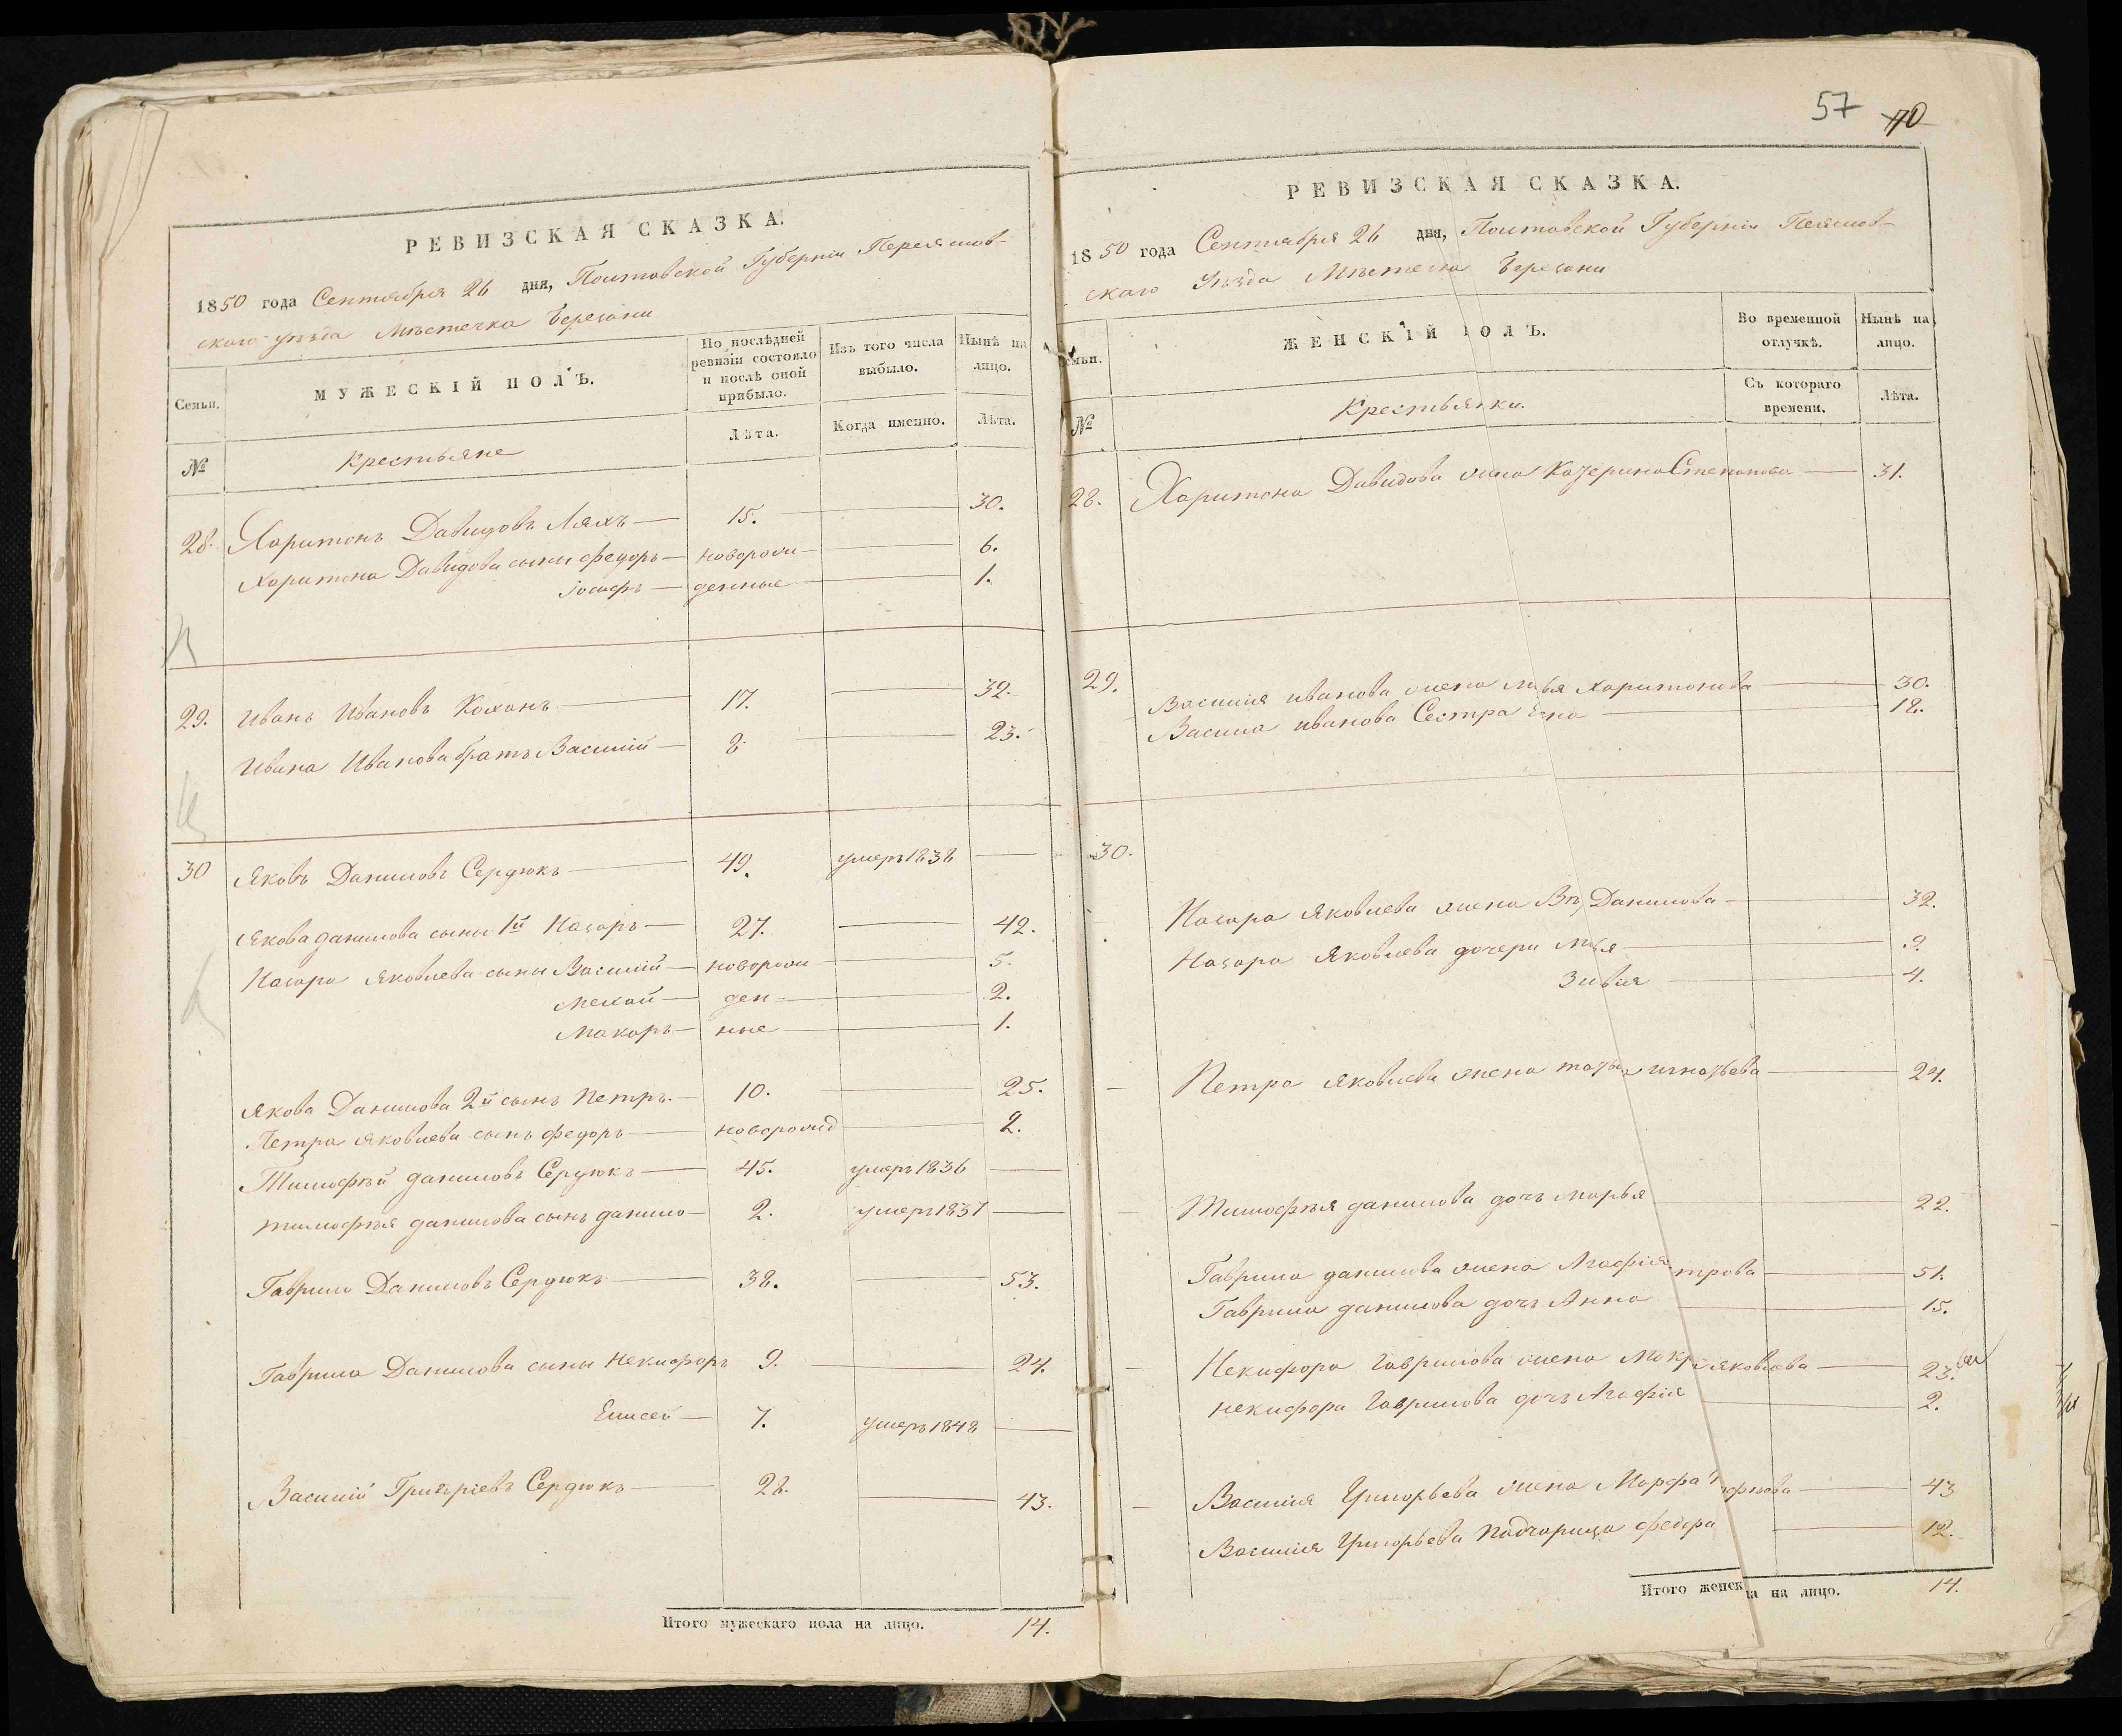 57 70
РЕВИЗСКАЯ СКАЗКА.
1850 года Сентября 26 дня, Полтавской Губерніи Переяслов-
скаго уѣзда Мѣстечка Березани
Семьи.
МУЖЕСКІЙ ПОЛЪ.
По послѣдней ревизіи состояло и послѣ оной прибыло.
Изъ того числа выбыло.
Нынѣ на лицо.
№
Крестьяне
Лѣта.
Когда именно.
Лѣта.
28. Харитонъ Давидовъ Ляхъ — 15. — 30.
Харитона Давидова сыны Федоръ — новорож — 6.
Іосифъ — денные — 1.
29. Иванъ Ивановъ Коханъ — 17. — 32.
Ивана Иванова братъ Василій — 8. — 23.
30 Яковъ Даниловъ Сердюкъ — 49. умеръ 1838 —
Якова данилова сыны 1й Назаръ — 27. — 42.
Назара Яковлева сыны Василій — новорож — 5.
Мехай — ден — 2.
Макаръ — ные — 1.
Якова Данилова 2й сынъ Петръ. — 10. — 25.
Петра Яковлева сынъ федоръ — новорожд — 2.
Тимофѣй даниловъ Сердюкъ — 45. умеръ 1836 —
тимофѣя данилова сынъ данило — 2. умеръ 1837 —
Гаврило Даниловъ Сердюкъ — 38. — 53.
Гаврила Данилова сыны Некифоръ 9. — 24.
Елисей — 7. умеръ 1848 —
Василій Григоріевъ Сердюкъ — 28. — 43.
Итого мужескаго пола на лицо. 14.
РЕВИЗСКАЯ СКАЗКА.
1850 года Сентября 26 дня, Полтавской Губерніи Пеяслов-
скаго Уѣзда Мѣстечка Березани
емьи.
ЖЕНСКІЙ ПОЛЪ.
Во временной отлучкѣ.
Нынѣ на лицо.
№
Крестьянки.
Съ котораго времени.
Лѣта.
28. Харитона Давидова жена Катерина Степанова — 31.
29. Василія иванова жена Харитонова — 30.
Васила иванова Сестра — 18.
30.
Назара Яковлева жена Данилова — 32.
Назара Яковлева дочери — 9.
4.
Петра Яковлева жена игнатьева — 24.
Тимофѣя данилова дочь марья — 22.
Гаврила данилова жена Агафія трова — 51.
Гаврила данилова дочь Анна — 15.
Некифора гаврилова жена яковлева — 23.
некифора гаврилова дочь Агафія — 2.
Василія Григорьева жена Марфа — 43
Василія Григорьева падчерица федора — 12.
Итого женск на лицо. 14.